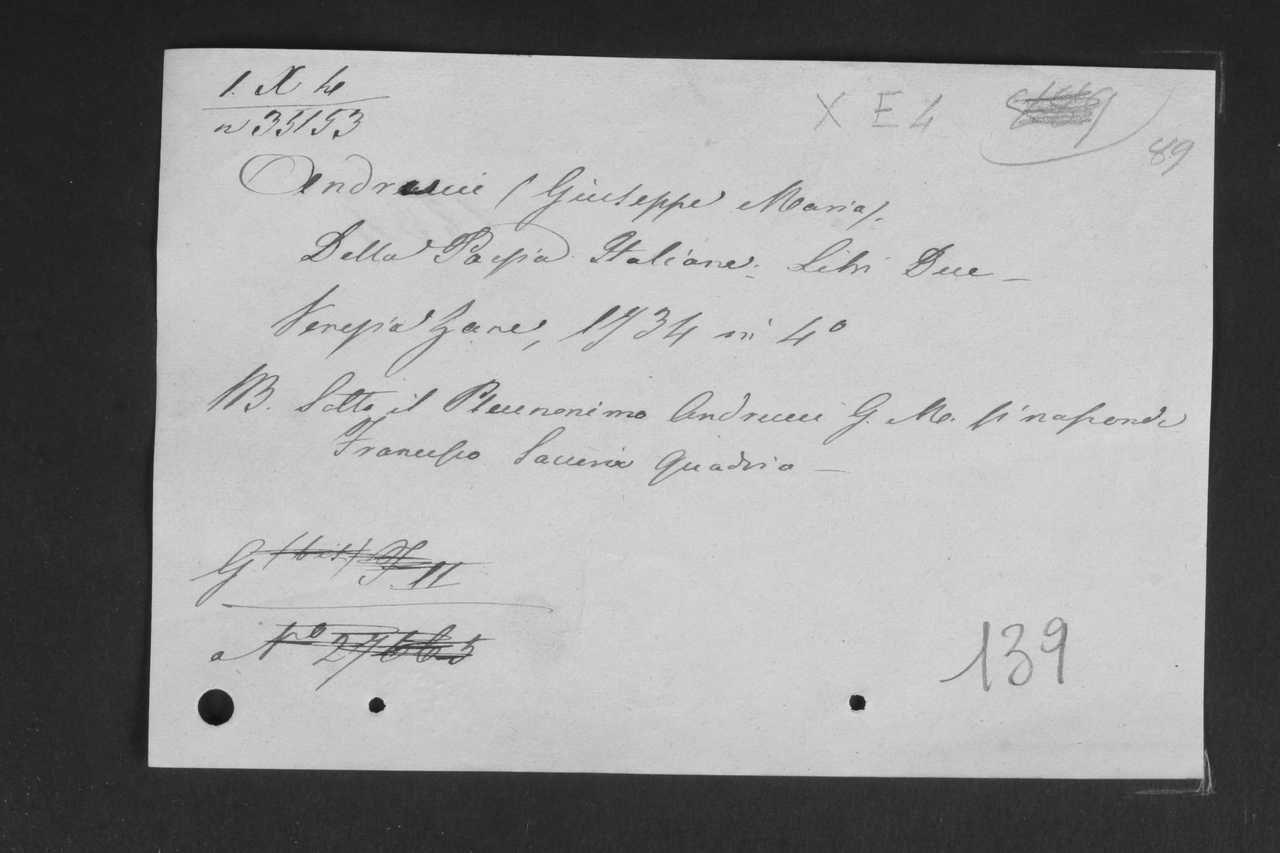 1. X h
n 35153
X E 4
89
Andrucci (Giuseppe Maria).
Della Poesia Italiana. Libri Due —
Venezia Zane, 1734 in 4º
NB. Sotto il Pseunonimo Andrucci G. M. si nasconde
Francesco Saverio Quadrio —
G (bis) F. II
a Nº 27665
139